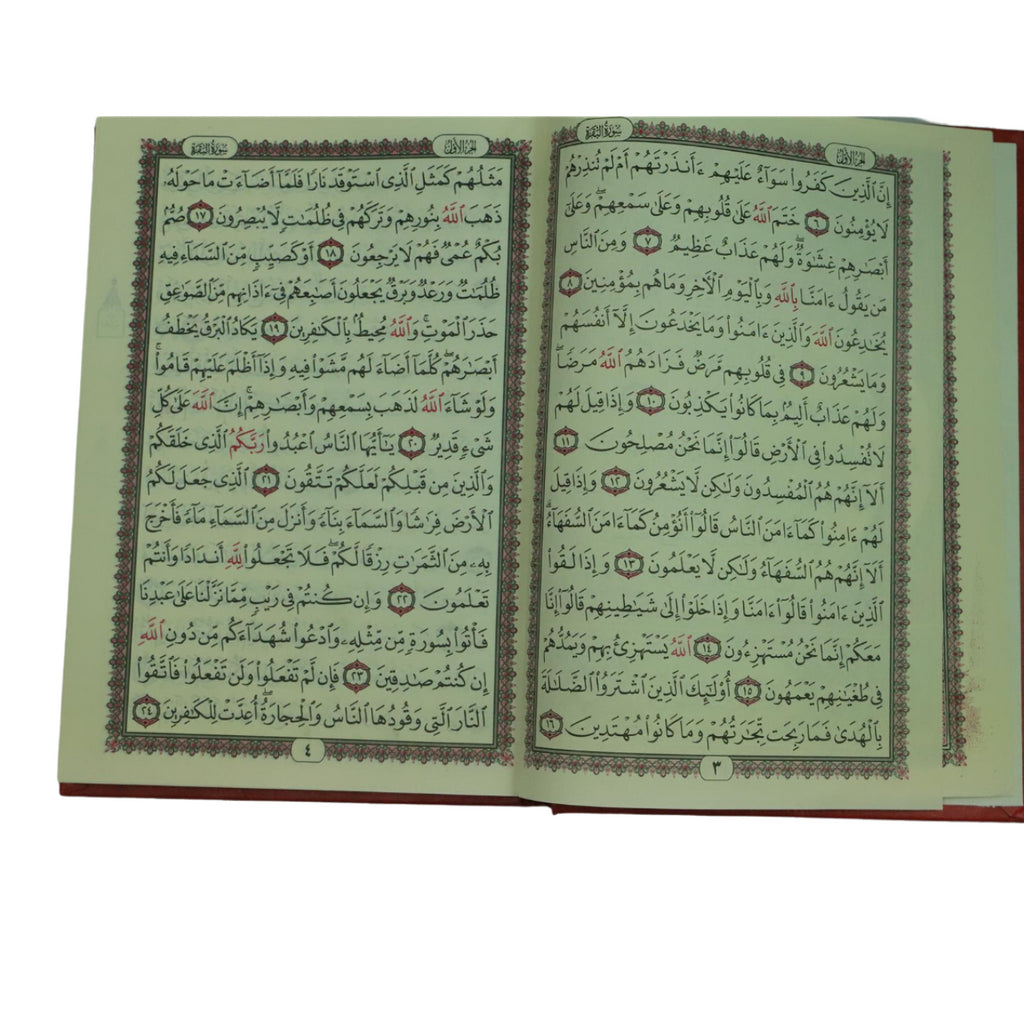 سورة البقرة
الجزء الأول
إِنَّ ٱلَّذِينَ كَفَرُوا۟ سَوَآءٌ عَلَيْهِمْ ءَأَنذَرْتَهُمْ أَمْ لَمْ تُنذِرْهُمْ
لَا يُؤْمِنُونَ ٦ خَتَمَ ٱللَّهُ عَلَىٰ قُلُوبِهِمْ وَعَلَىٰ سَمْعِهِمْ ۖ وَعَلَىٰٓ
أَبْصَٰرِهِمْ غِشَٰوَةٌ ۖ وَلَهُمْ عَذَابٌ عَظِيمٌ ٧ وَمِنَ ٱلنَّاسِ
مَن يَقُولُ ءَامَنَّا بِٱللَّهِ وَبِٱلْيَوْمِ ٱلْءَاخِرِ وَمَا هُم بِمُؤْمِنِينَ ٨
يُخَٰدِعُونَ ٱللَّهَ وَٱلَّذِينَ ءَامَنُوا۟ وَمَا يَخْدَعُونَ إِلَّآ أَنفُسَهُمْ
وَمَا يَشْعُرُونَ ٩ فِى قُلُوبِهِم مَّرَضٌ فَزَادَهُمُ ٱللَّهُ مَرَضًا ۖ
وَلَهُمْ عَذَابٌ أَلِيمٌۢ بِمَا كَانُوا۟ يَكْذِبُونَ ١٠ وَإِذَا قِيلَ لَهُمْ
لَا تُفْسِدُوا۟ فِى ٱلْأَرْضِ قَالُوٓا۟ إِنَّمَا نَحْنُ مُصْلِحُونَ ١١
أَلَآ إِنَّهُمْ هُمُ ٱلْمُفْسِدُونَ وَلَٰكِن لَّا يَشْعُرُونَ ١٢ وَإِذَا قِيلَ
لَهُمْ ءَامِنُوا۟ كَمَآ ءَامَنَ ٱلنَّاسُ قَالُوٓا۟ أَنُؤْمِنُ كَمَآ ءَامَنَ ٱلسُّفَهَآءُ ۗ
أَلَآ إِنَّهُمْ هُمُ ٱلسُّفَهَآءُ وَلَٰكِن لَّا يَعْلَمُونَ ١٣ وَإِذَا لَقُوا۟
ٱلَّذِينَ ءَامَنُوا۟ قَالُوٓا۟ ءَامَنَّا وَإِذَا خَلَوْا۟ إِلَىٰ شَيَٰطِينِهِمْ قَالُوٓا۟ إِنَّا
مَعَكُمْ إِنَّمَا نَحْنُ مُسْتَهْزِءُونَ ١٤ ٱللَّهُ يَسْتَهْزِئُ بِهِمْ وَيَمُدُّهُمْ
فِى طُغْيَٰنِهِمْ يَعْمَهُونَ ١٥ أُو۟لَٰٓئِكَ ٱلَّذِينَ ٱشْتَرَوُا۟ ٱلضَّلَٰلَةَ
بِٱلْهُدَىٰ فَمَا رَبِحَت تِّجَٰرَتُهُمْ وَمَا كَانُوا۟ مُهْتَدِينَ ١٦
٣
الجزء الأول
سورة البقرة
مَثَلُهُمْ كَمَثَلِ ٱلَّذِى ٱسْتَوْقَدَ نَارًا فَلَمَّآ أَضَآءَتْ مَا حَوْلَهُۥ
ذَهَبَ ٱللَّهُ بِنُورِهِمْ وَتَرَكَهُمْ فِى ظُلُمَٰتٍ لَّا يُبْصِرُونَ ١٧ صُمٌّۢ
بُكْمٌ عُمْىٌ فَهُمْ لَا يَرْجِعُونَ ١٨ أَوْ كَصَيِّبٍ مِّنَ ٱلسَّمَآءِ فِيهِ
ظُلُمَٰتٌ وَرَعْدٌ وَبَرْقٌ يَجْعَلُونَ أَصَٰبِعَهُمْ فِىٓ ءَاذَانِهِم مِّنَ ٱلصَّوَٰعِقِ
حَذَرَ ٱلْمَوْتِ ۚ وَٱللَّهُ مُحِيطٌۢ بِٱلْكَٰفِرِينَ ١٩ يَكَادُ ٱلْبَرْقُ يَخْطَفُ
أَبْصَٰرَهُمْ ۖ كُلَّمَآ أَضَآءَ لَهُم مَّشَوْا۟ فِيهِ وَإِذَآ أَظْلَمَ عَلَيْهِمْ قَامُوا۟ ۚ
وَلَوْ شَآءَ ٱللَّهُ لَذَهَبَ بِسَمْعِهِمْ وَأَبْصَٰرِهِمْ ۚ إِنَّ ٱللَّهَ عَلَىٰ كُلِّ
شَىْءٍ قَدِيرٌ ٢٠ يَٰٓأَيُّهَا ٱلنَّاسُ ٱعْبُدُوا۟ رَبَّكُمُ ٱلَّذِى خَلَقَكُمْ
وَٱلَّذِينَ مِن قَبْلِكُمْ لَعَلَّكُمْ تَتَّقُونَ ٢١ ٱلَّذِى جَعَلَ لَكُمُ
ٱلْأَرْضَ فِرَٰشًا وَٱلسَّمَآءَ بِنَآءً وَأَنزَلَ مِنَ ٱلسَّمَآءِ مَآءً فَأَخْرَجَ
بِهِۦ مِنَ ٱلثَّمَرَٰتِ رِزْقًا لَّكُمْ ۖ فَلَا تَجْعَلُوا۟ لِلَّهِ أَندَادًا وَأَنتُمْ
تَعْلَمُونَ ٢٢ وَإِن كُنتُمْ فِى رَيْبٍ مِّمَّا نَزَّلْنَا عَلَىٰ عَبْدِنَا
فَأْتُوا۟ بِسُورَةٍ مِّن مِّثْلِهِۦ وَٱدْعُوا۟ شُهَدَآءَكُم مِّن دُونِ ٱللَّهِ
إِن كُنتُمْ صَٰدِقِينَ ٢٣ فَإِن لَّمْ تَفْعَلُوا۟ وَلَن تَفْعَلُوا۟ فَٱتَّقُوا۟
ٱلنَّارَ ٱلَّتِى وَقُودُهَا ٱلنَّاسُ وَٱلْحِجَارَةُ ۖ أُعِدَّتْ لِلْكَٰفِرِينَ ٢٤
٤